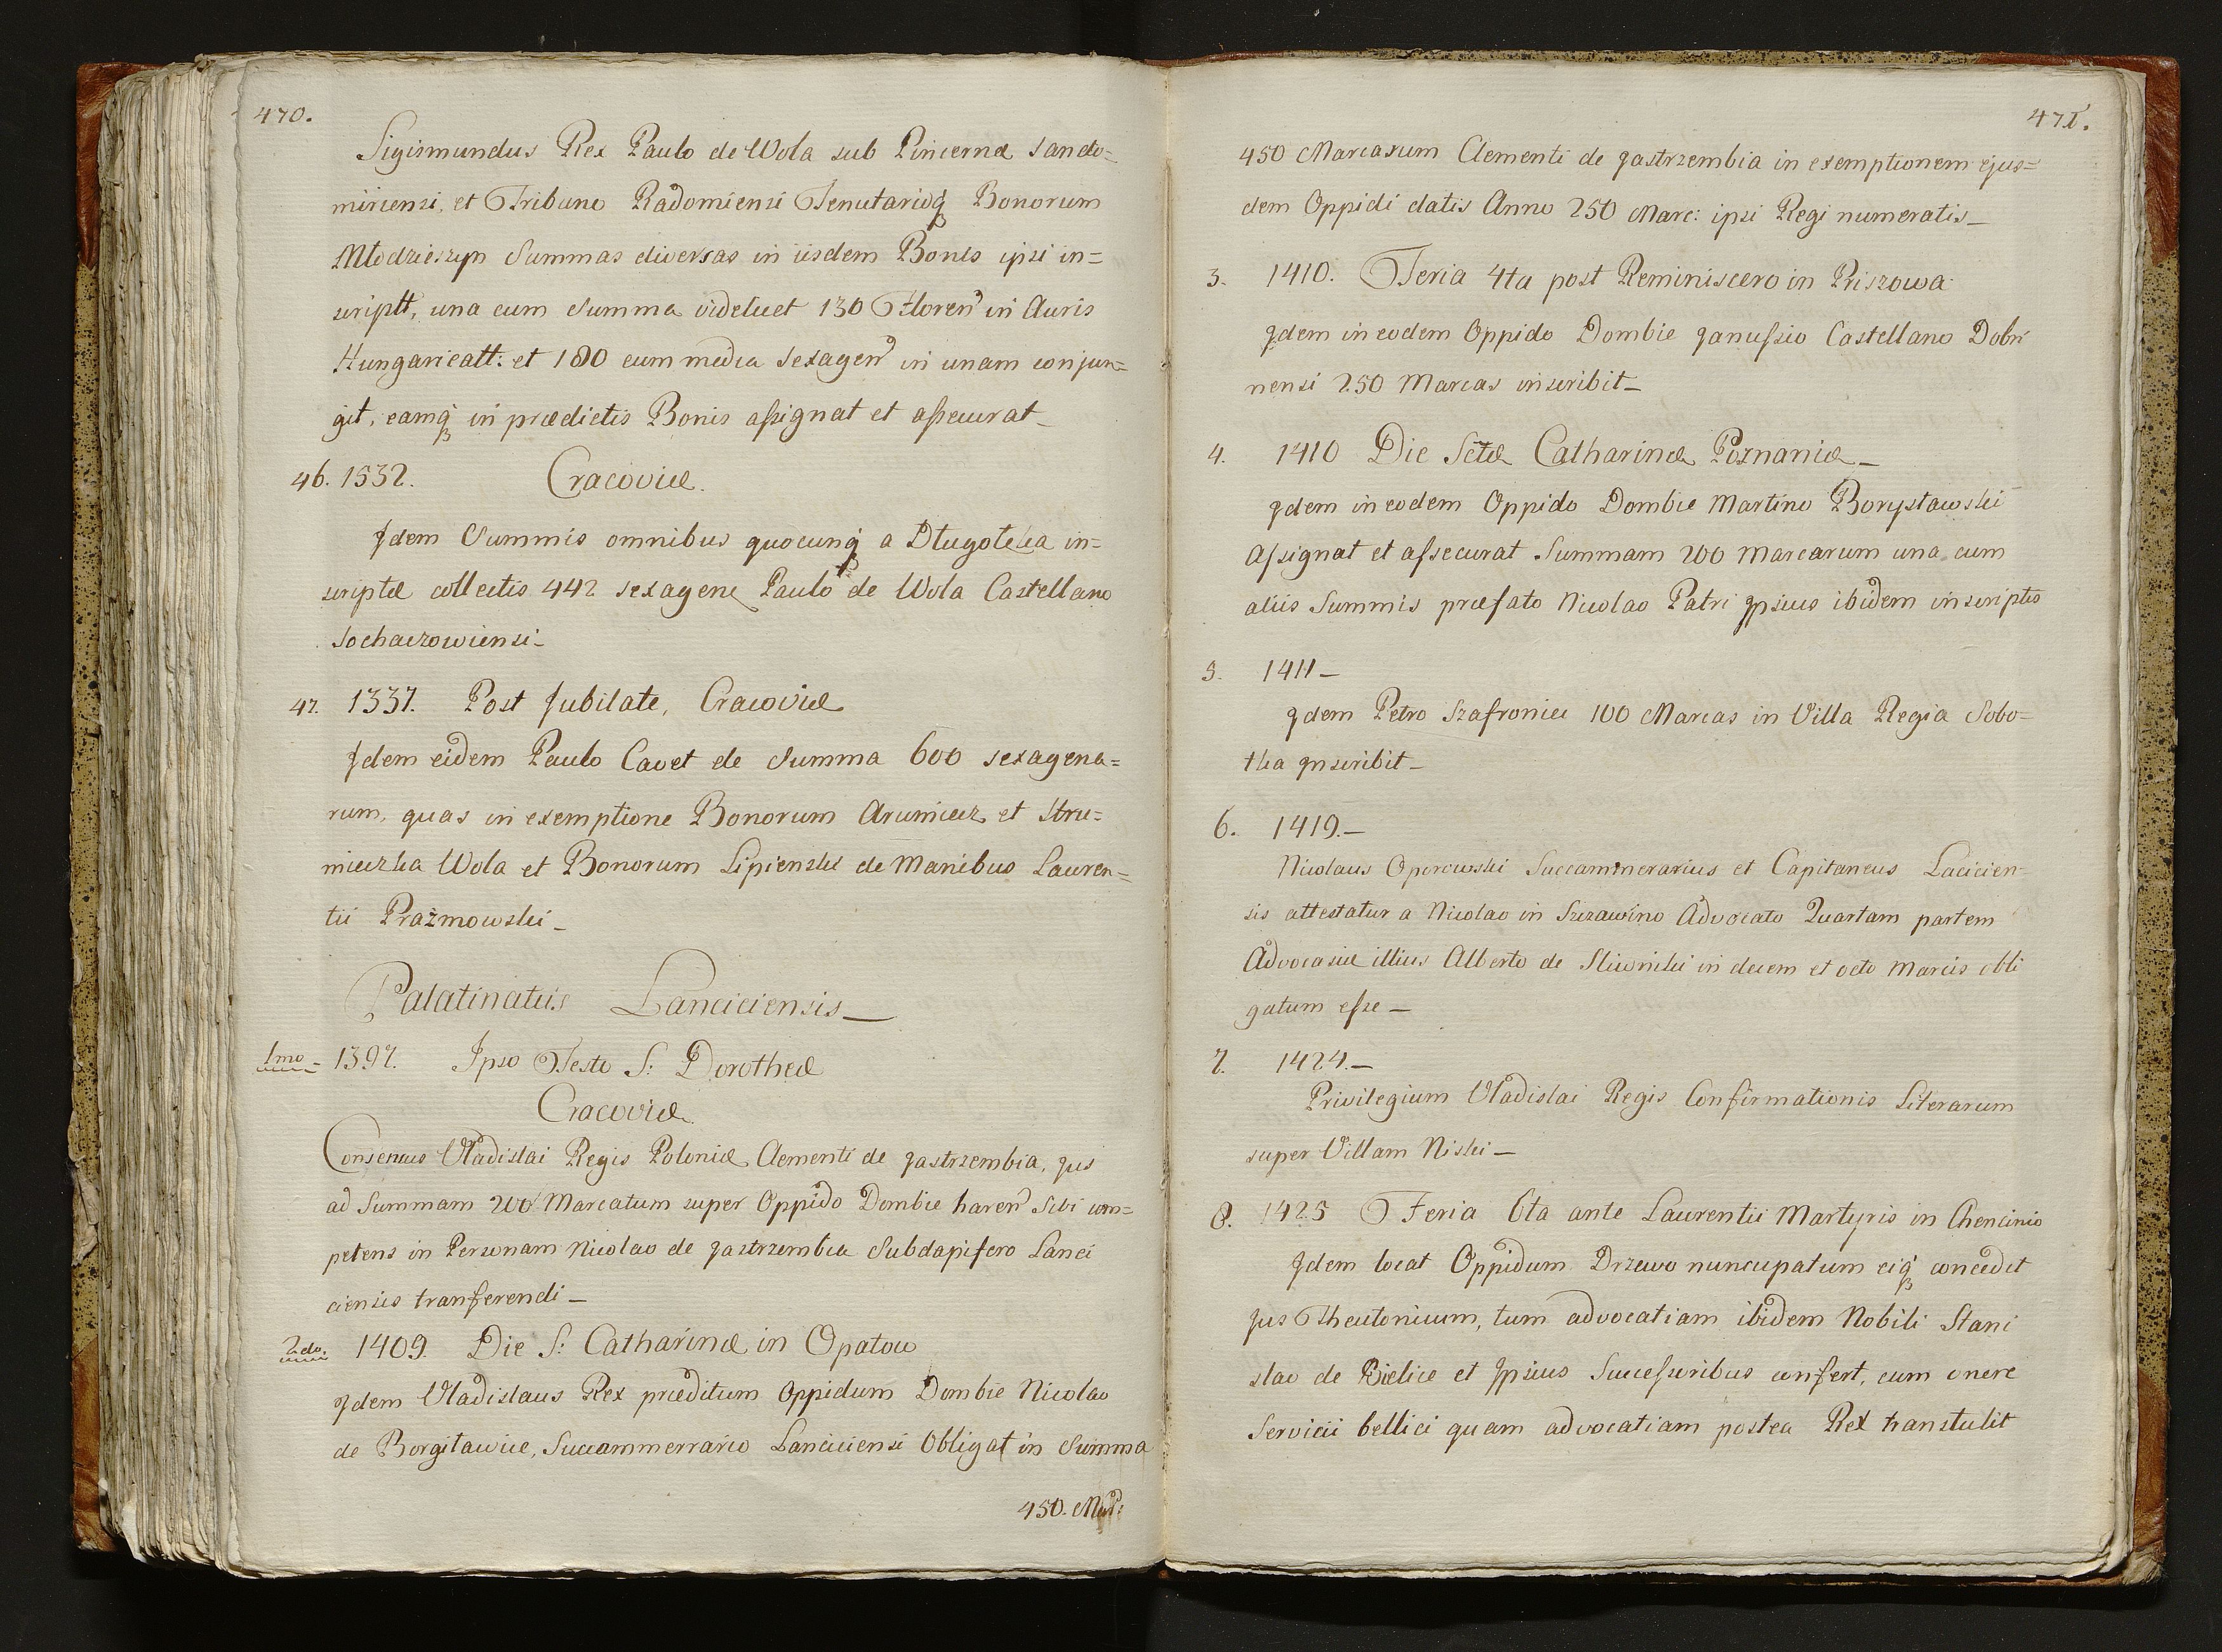 470.
Sigismundus Rex Paulo de Wola sub Pincernæ Sando=
miriensi, et Tribuno Radomiensi Tenutarioq Bonorum
Młodzieszyn Summas diversas in iisdem Bonis ipsi in=
scriptt, una cum Summa videlicet 130 Floren in Auris
Hungaricatt: et 180 cum media sexagen in unam conjun=
git, eamq in prædictis Bonis assignat et assecurat_
46. 1532. Cracoviæ.
Jdem Summis omnibus quocunq a Długotcka in=
scriptæ collectis 442 sexagene Paulo de Wola Castellano
Sochaczowiensi_
47. 1337. Post Jubilate, Cracoviæ
Jdem eidem Paulo Cavet de Summa 600 sexagena=
rum, quas in exemptione Bonorum Arumiecz et Stru=
mieczka Wola et Bonorum Lipienski de Manibus Lauren=
tii Prażmowski_
Palatinatus Lanciciensis_
1mo_ 1397. Ipso Festo S: Dorotheæ
Cracoviæ.
Consensus Vladislai Regis Poloniæ Clementi de Jastrzembia, Jus
ad Summam 200 Marcatum super Oppido Dombie haren Sibi com=
petens in Personam Nicolao de Jastrzembia Subdapifero Lanci
ciensis tranferendi_
2do. 1409. Die S: Catharinæ in Opatow
Jdem Vladislaus Rex præditum Oppidum Dombie Nicolao
de Borgitawice, Succammerrario Lanciciensi Obligat in Summa
450. Mar:
471.
450 Marcarum Clementi de Jastrzembia in exemptionem ejus=
dem Oppidi datis Anno 250 Marc: ipsi Regi numeratis_
3. 1410. Feria 4ta post Reminiscero in Priszowa
Jdem in eodem Oppido Dombie Janussio Castellano Dobri
nensi 250 Marcas inscribit_
4. 1410 Die Sctæ Catharinæ Poznaniæ_
Jdem in eodem Oppido Dombie Martino Borysławski
Assignat et assecurat Summam 200 Marcarum una cum
aliis Summis præfato Nicolao Patri Jpsius ibidem inscriptis
5. 1411_
Jdem Petro Szafroniec 100 Marcas in Villa Regia Sobo=
tka Jnscribit_
6. 1419._
Nicolaus Oporowski Succammerarius et Capitaneus Lacicien=
sis attestatur a Nicolao in Szczawino Advocato Quartam partem
Advocasiæ illius Alberto de Sliwniki in decem et octo Marcis obli
gatum esse_
7. 1424._
Privilegium Vladislai Regis Confirmationis Literarum
super Villam Niski_
8. 1425 Feria 6ta ante Laurentii Martyris in Chencinio
Jdem locat Oppidum Drzewo nuncupatum eiq concedit
Jus Theutonicum, tum advocatiam ibidem Nobili Stani
slao de Bielice et Jpsius Successoribus confert, cum onere
Servicii bellici quam advocatiam postea Rex transtulit